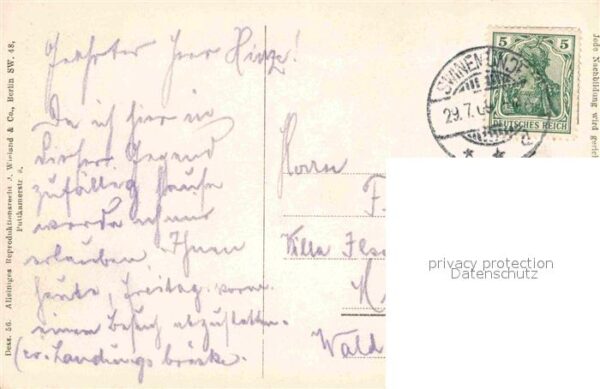 Geehrter Herr Hinze!
Da ich hier in
dieser Gegend
zufällig
werde ich mir
erlauben Ihnen
heute, Freitag, vorm.
einen Besuch abzustatten.
(ev. Landungsbrücke.
Herrn
F.
Villa
Wald
5 5
DEUTSCHES REICH
SWINEMÜNDE
29.7.
* *
privacy protection
Datenschutz
Dess. 56. Alleiniges Reproduktionsrecht J. Wieland & Co., Berlin SW. 48,
Puttkamerstr
Jede Nachbildung wird